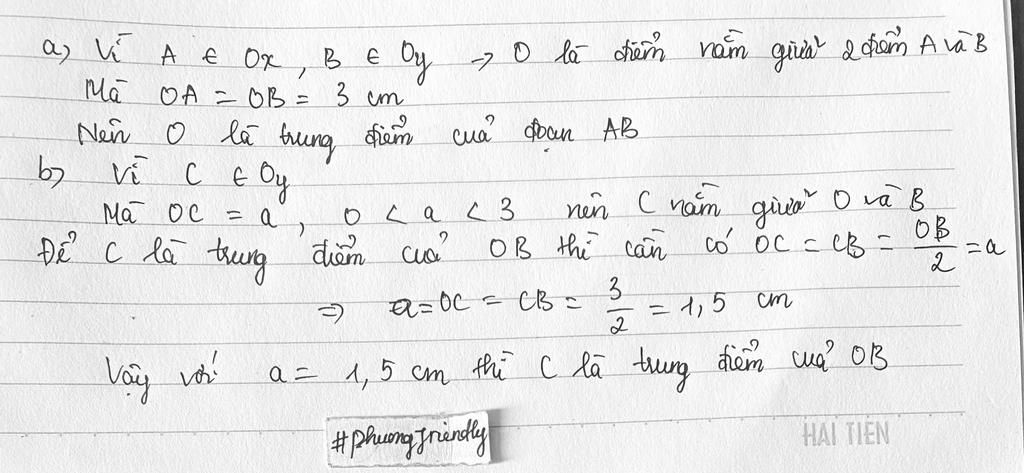 a) Vì A ∈ Ox, B ∈ Oy → O là điểm nằm giữa 2 điểm A và B
Mà OA = OB = 3 cm
Nên O là trung điểm của đoạn AB
b) Vì C ∈ Oy
Mà OC = a, 0 < a < 3 nên C nằm giữa O và B
Để C là trung điểm của OB thì cần có OC = CB = OB/2 = a
⇒ a = OC = CB = 3/2 = 1,5 cm
Vậy với a = 1,5 cm thì C là trung điểm của OB
#phuongfriendly
HẢI TIẾN